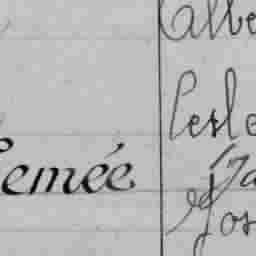 Albe
Cesle
emée
Ja
Jos